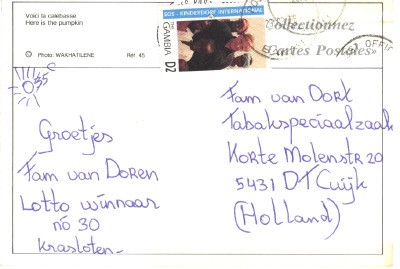 Voici la calebasse
Here is the pumpkin
© Photo: WAKHATILENE Réf. 45
SOS - KINDERDORF INTERNATIONAL
THE GAMBIA D2
Collectionnez
Cartes Postales»
OFFIC
35°
Groetjes
Fam van Doren
Lotto winnaar
no 30
Krasloten
Fam van Oort
Tabakspeciaalzaak
Korte Molenstr 20
5431 DT Cuijk
(Holland)